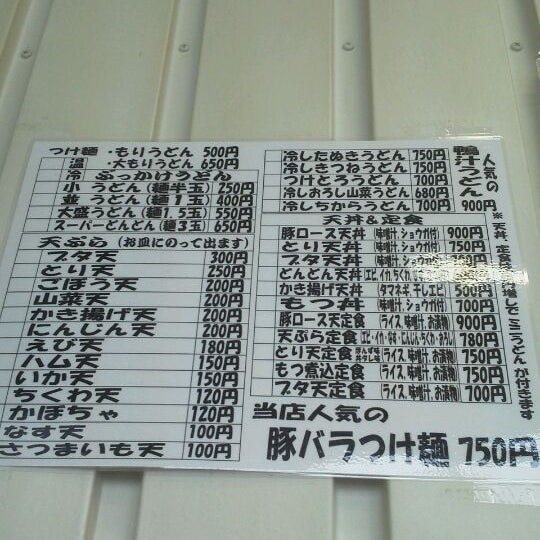 つけ麺・もりうどん 500円
温・大もりうどん 650円
冷 ぶっかけうどん
小 うどん(麺半玉) 250円
並 うどん(麺1玉) 400円
大盛うどん(麺1.5玉) 550円
スーパーどんどん(麺3玉) 650円
天ぷら (お皿にのって出ます)
ブタ天 300円
とり天 250円
ごぼう天 200円
山菜天 200円
かき揚げ天 200円
にんじん天 200円
えび天 180円
ハム天 150円
いか天 150円
ちくわ天 120円
かぼちゃ 120円
なす天 100円
さつまいも天 100円
冷したぬきうどん 750円
冷しきつねうどん 750円
つけとろうどん 700円
冷しおろし山菜うどん 680円
冷しちからうどん 700円
人気の
鴨汁うどん
900円
天丼&定食
豚ロース天丼 (味噌汁,ショウガ付) 900円
とり天丼 (味噌汁,ショウガ付) 750円
ブタ天丼 (味噌汁,ショウガ付)
どんどん天丼 (エビ,イカ,ちくわ
かき揚げ天丼 (タマネギ,干しエビ) 500円
もつ丼 (味噌汁,ショウガ付) 700円
豚ロース天定食 (ライス,味噌汁,お漬物) 900円
天ぷら定食 (エビ・イカ・なす・にんじん・ちくわ・おろし) 780円
とり天定食 (ライス,味噌汁,お漬物) 750円
もつ煮込定食 (ライス,味噌汁,お漬物) 750円
ブタ天定食 (ライス,味噌汁,お漬物) 700円
※天丼、定食
ミニうどんが付きます
当店人気の
豚バラつけ麺 750円